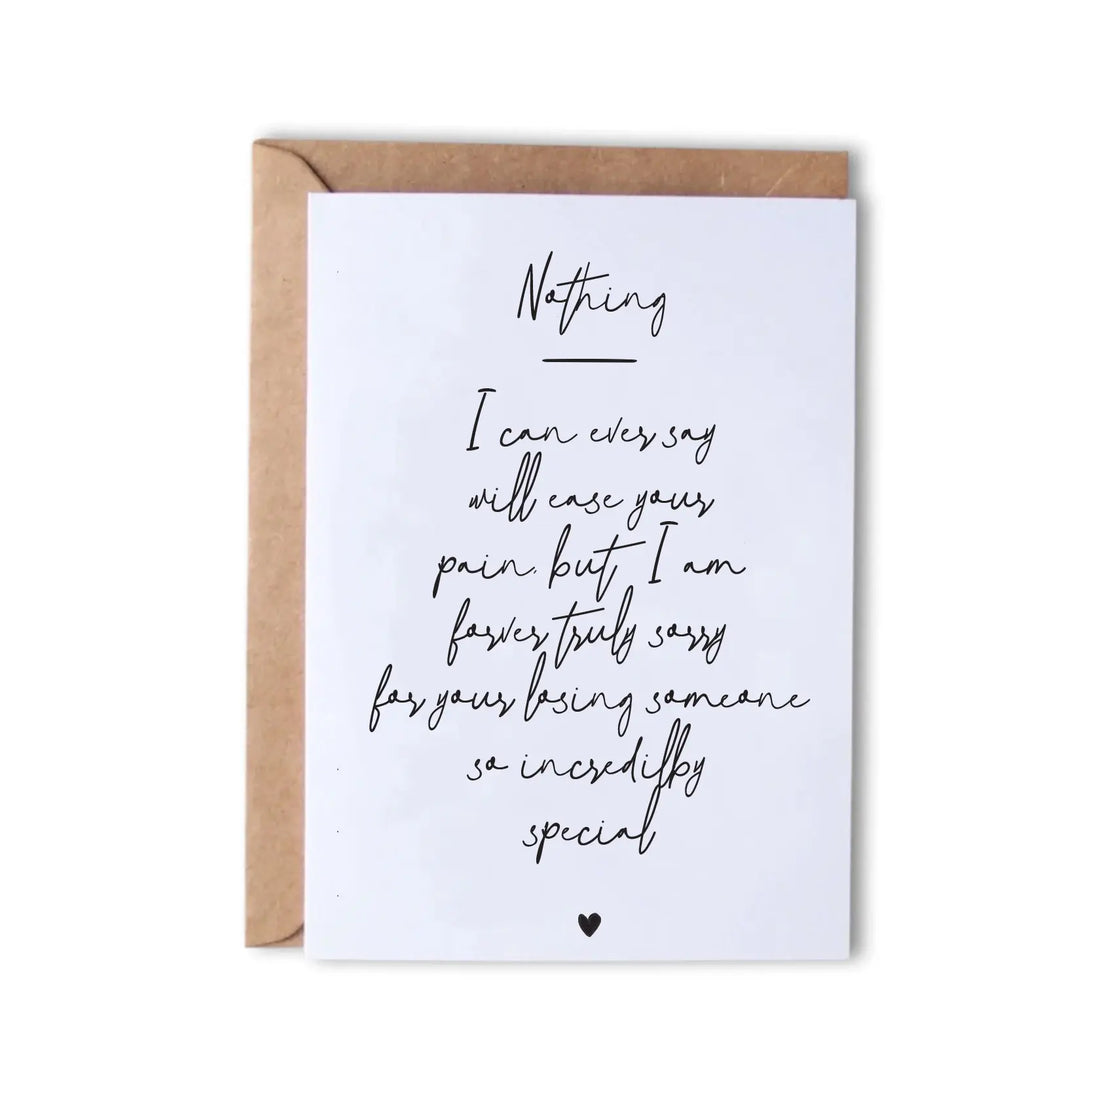 Nothing
I can ever say
will ease your
pain, but I am
forver truly sorry
for your losing someone
so incredilby
special